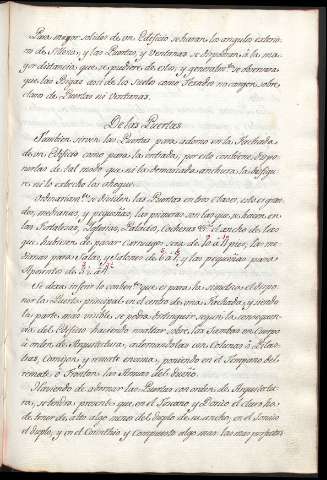 Para mayor solidez de un Edificio se haran los angulos exterio-
res de Piedra, y las Puertas, y Ventanas se dispondran á la ma-
yor distancia que se pudiere de ellos, y generalm.te se observará
que las Bigas asi de los Suelos como Texados no carguen sobre
claro de Puertas ni Ventanas.
De las Puertas
Tambien sirven las Puertas para adorno en la Fachada
de un Edificio como para la entrada, por ello conviene dispo-
nerlas de tal modo que ni la demasiada anchura la desfigu-
re, ni lo estrecho las ahogue.
Ordinariam.te se dividen las Puertas en tres clases, esto es gran-
des, medianas, y pequeñas; las primeras son las que se hacen en
las Fortalezas, Iglesias, Palacios, Cocheras &c.a el ancho de las
que hubiesen de pasar carruages será de 10 á 11 pies, las me-
dianas para Salas, y Salones de 6 á 7, y las pequeñas para
Aposentos de 3 á 4.
Se dexa inferir lo conben.te que es para la simetria el dispo-
ner la Puerta principal en el centro de una Fachada, y siendo
la parte mas visible se podrá distinguir segun la consequen-
cia del Edificio haciendo resaltar sobre las Jambas un Cuerpo
ú orden de Arquitectura, adornandolas con Colunas ó Pilas-
tras, Cornison, y remate encima, poniendo en el Timpano del
remate, ó Fronton las Armas del Dueño.
Haviendo de adornar las Puertas con orden de Arquitectu-
ra, se tendrá presente que en el Toscano y Dorico el claro ha
de tener de alto algo menos del duplo de su ancho, en el Jonico
el duplo, y en el Corinthio y Compuesto algo mas; las mas perfectas